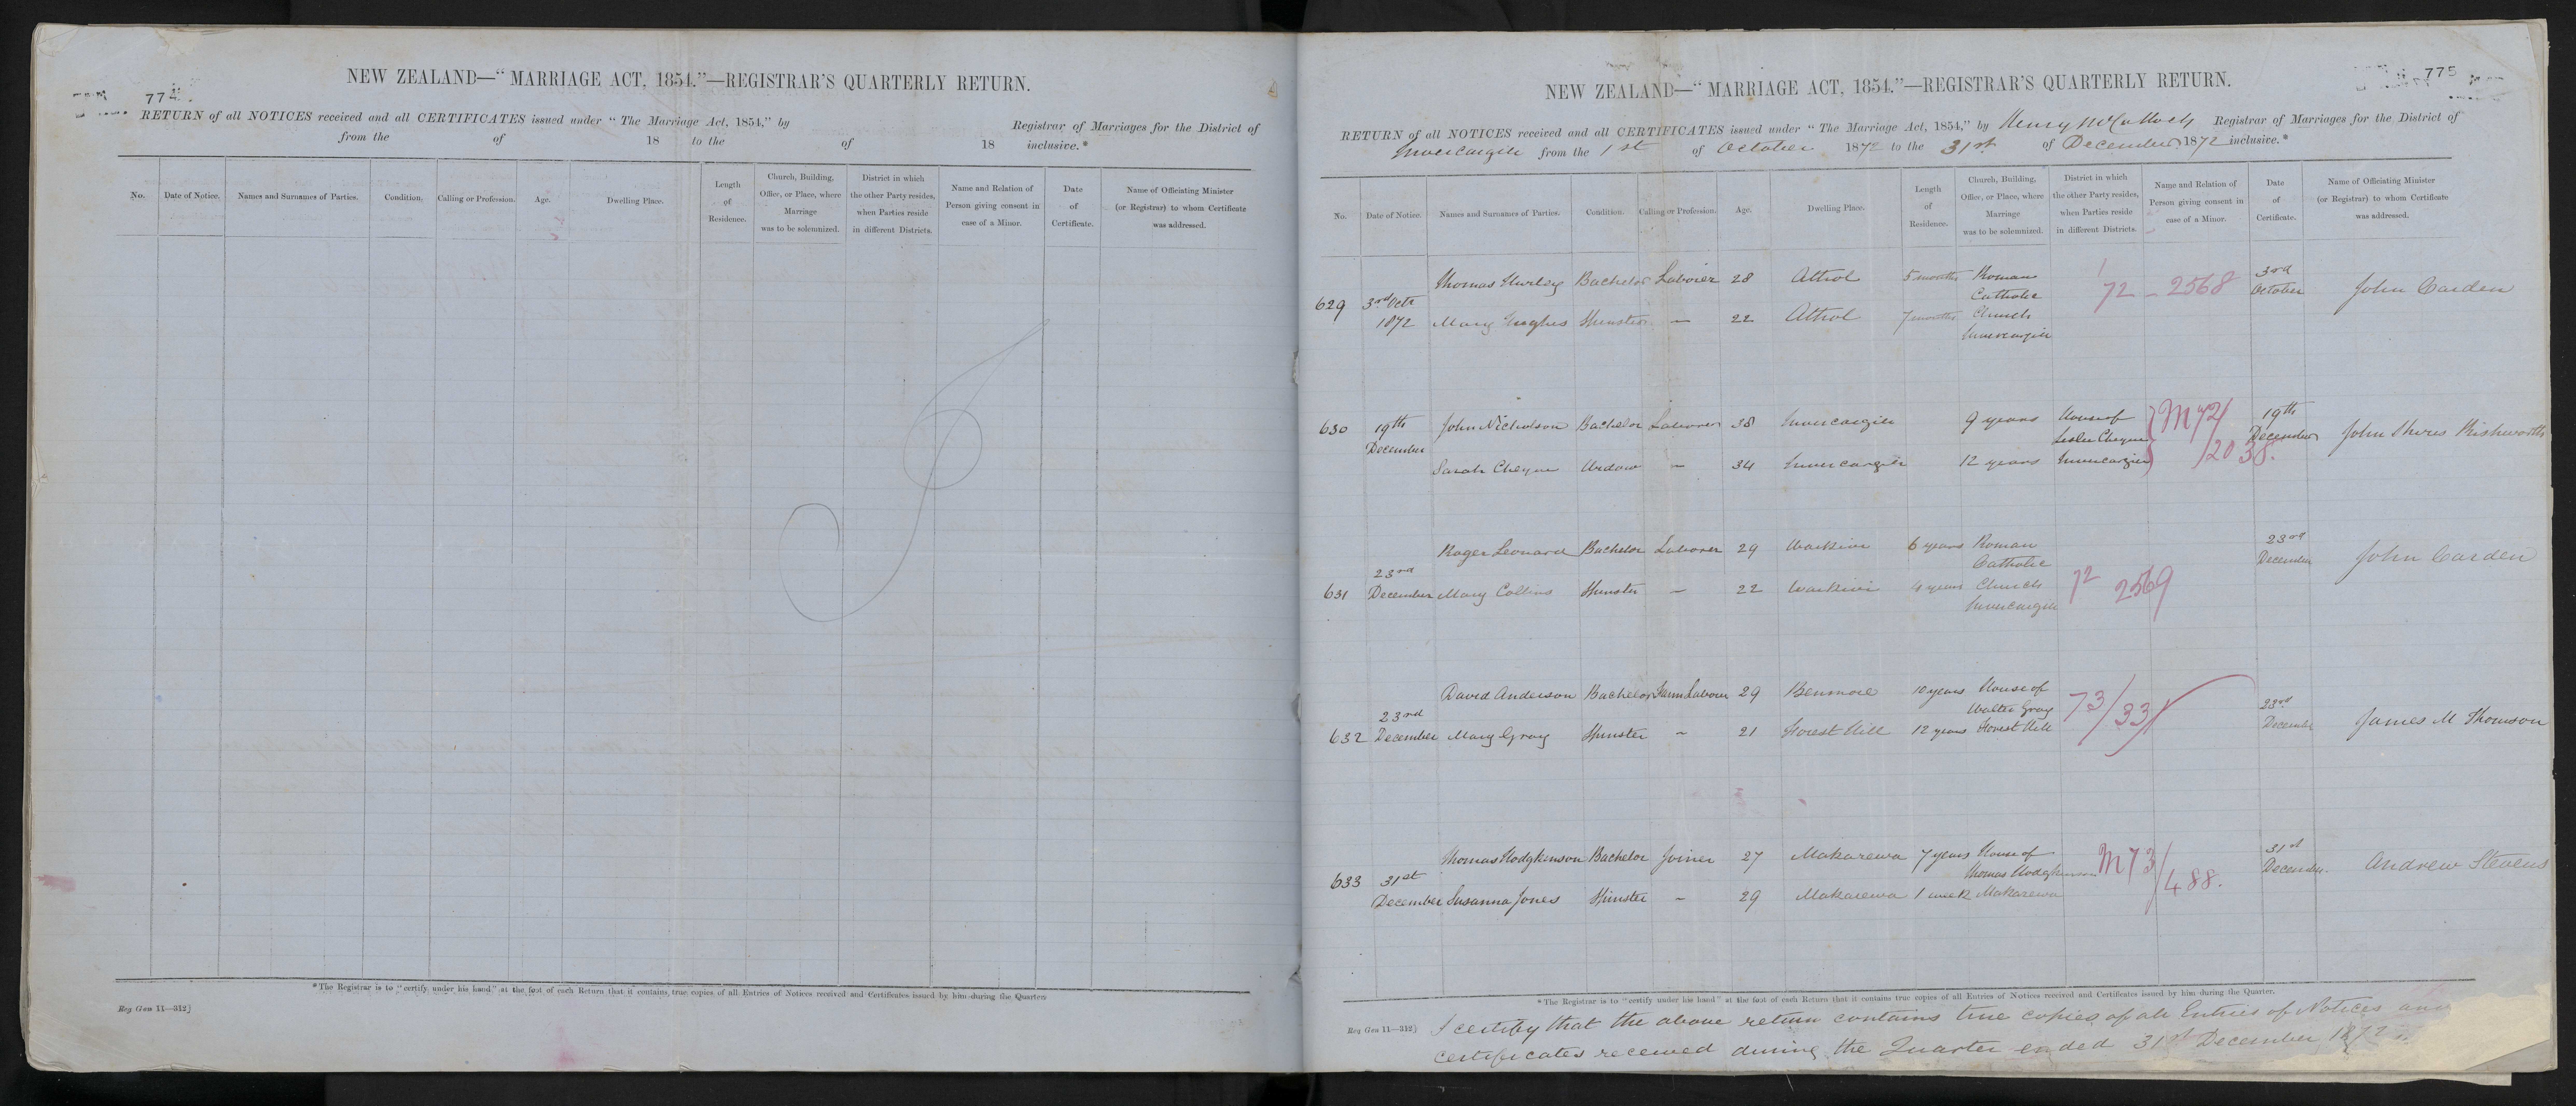 774
NEW ZEALAND—"MARRIAGE ACT, 1854."—REGISTRAR'S QUARTERLY RETURN.
RETURN of all NOTICES received and all CERTIFICATES issued under "The Marriage Act, 1854," by Registrar of Marriages for the District of
from the of 18 to the of 18 inclusive.*
No. Date of Notice. Names and Surnames of Parties. Condition. Calling or Profession. Age. Dwelling Place. Length of Residence. Church, Building, Office, or Place, where Marriage was to be solemnized. District in which the other Party resides, when Parties reside in different Districts. Name and Relation of Person giving consent in case of a Minor. Date of Certificate. Name of Officiating Minister (or Registrar) to whom Certificate was addressed.
*The Registrar is to "certify under his hand" at the foot of each Return that it contains true copies of all Entries of Notices received and Certificates issued by him during the Quarter.
Reg Gen 11—312]
775
NEW ZEALAND—"MARRIAGE ACT, 1854."—REGISTRAR'S QUARTERLY RETURN.
RETURN of all NOTICES received and all CERTIFICATES issued under "The Marriage Act, 1854," by Henry McCulloch Registrar of Marriages for the District of
Invercargill from the 1st of October 1872 to the 31st of December 1872 inclusive.*
No. Date of Notice. Names and Surnames of Parties. Condition. Calling or Profession. Age. Dwelling Place. Length of Residence. Church, Building, Office, or Place, where Marriage was to be solemnized. District in which the other Party resides, when Parties reside in different Districts. Name and Relation of Person giving consent in case of a Minor. Date of Certificate. Name of Officiating Minister (or Registrar) to whom Certificate was addressed.
Thomas Hurley Bachelor Laborer 28 Athol 5 months Roman 3rd
629 3rd Octr Catholic 72 - 2568 October John Carden
1872 Mary Hughes Spinster — 22 Athol 7 months Church
Invercargill
630 19th John Nicholson Bachelor Laborer 38 Invercargill 9 years House of M72/ 19th
December Leslie Cheyne /2038. December John Shires Rishworth
Sarah Cheyne Widow — 34 Invercargill 12 years Invercargill
Roger Leonard Bachelor Laborer 29 Waikivi 6 years Roman 23rd
23rd Catholic December John Carden
631 December Mary Collins Spinster — 22 Waikivi 4 years Church 72 2569
Invercargill
David Anderson Bachelor Farm Laborer 29 Benmore 10 years House of 73/33
23rd Walter Gray 23rd
632 December Mary Gray Spinster — 21 Forest Hill 12 years Forest Hill December James M Thomson
Thomas Hodgkinson Bachelor Joiner 27 Makarewa 7 years House of M73/ 31st
633 31st Thomas Hodgkinson 488. December Andrew Stevens
December Susanna Jones Spinster — 29 Makarewa 1 week Makarewa
*The Registrar is to "certify under his hand" at the foot of each Return that it contains true copies of all Entries of Notices received and Certificates issued by him during the Quarter.
Reg Gen 11—312]
I certify that the above return contains true copies of all Entries of Notices and
certificates received during the Quarter ended 31st December 1872